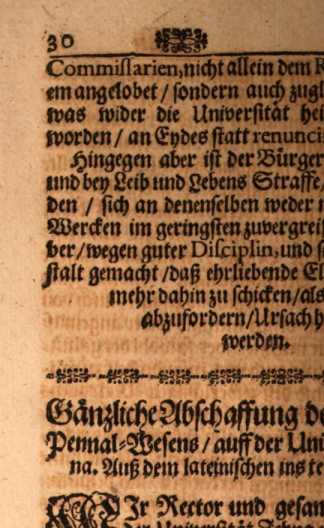 30
Commissarien, nicht allein dem R
em angelobet / sondern auch zugl
was wider die Universität hei
worden / an Eydes statt renunci
Hingegen aber ist der Bürger
und bey Leib und Lebens Straffe,
den / sich an denenselben weder
Wercken im geringsten zuvergreif
ber/wegen guter Disciplin, und s
stalt gemacht /daß ehrliebende El
mehr dahin zu schicken/als
abzufordern/Ursach h
werden.
Gäntzliche Abschaffung de
Pennal-Wesens / auff der Uni
na. Auß dem lateinischen ins te
WIr Rector und gesam
der Universität